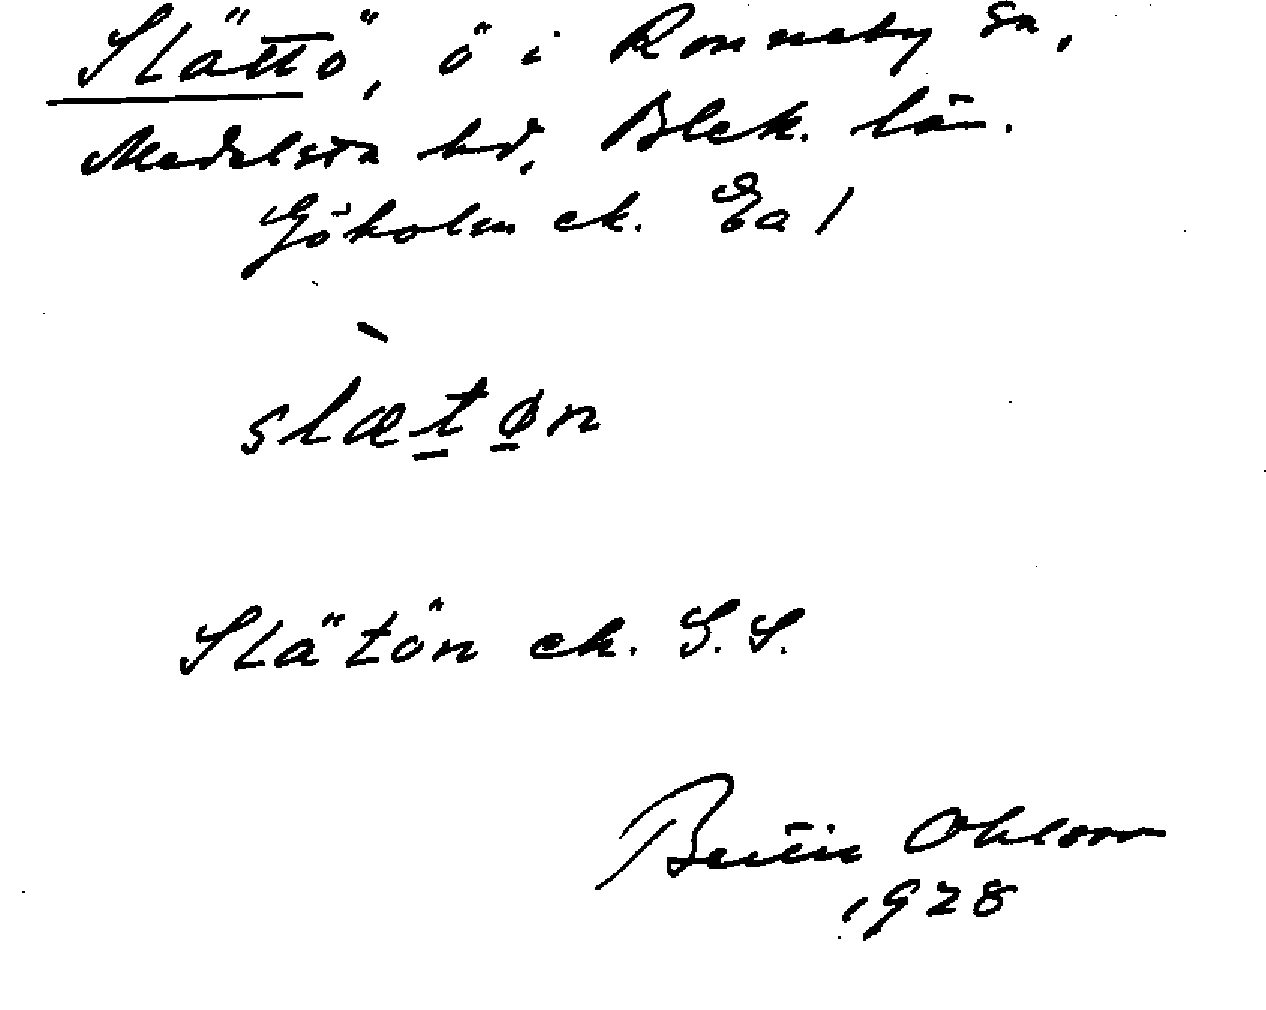 Slättö, ö i Ronneby sn,
Medelsta hd, Blek. län.
Göholm ek. Ea 1
`
slætøn
Slätön ek. S.S.
Bertil Ohlsson
1928